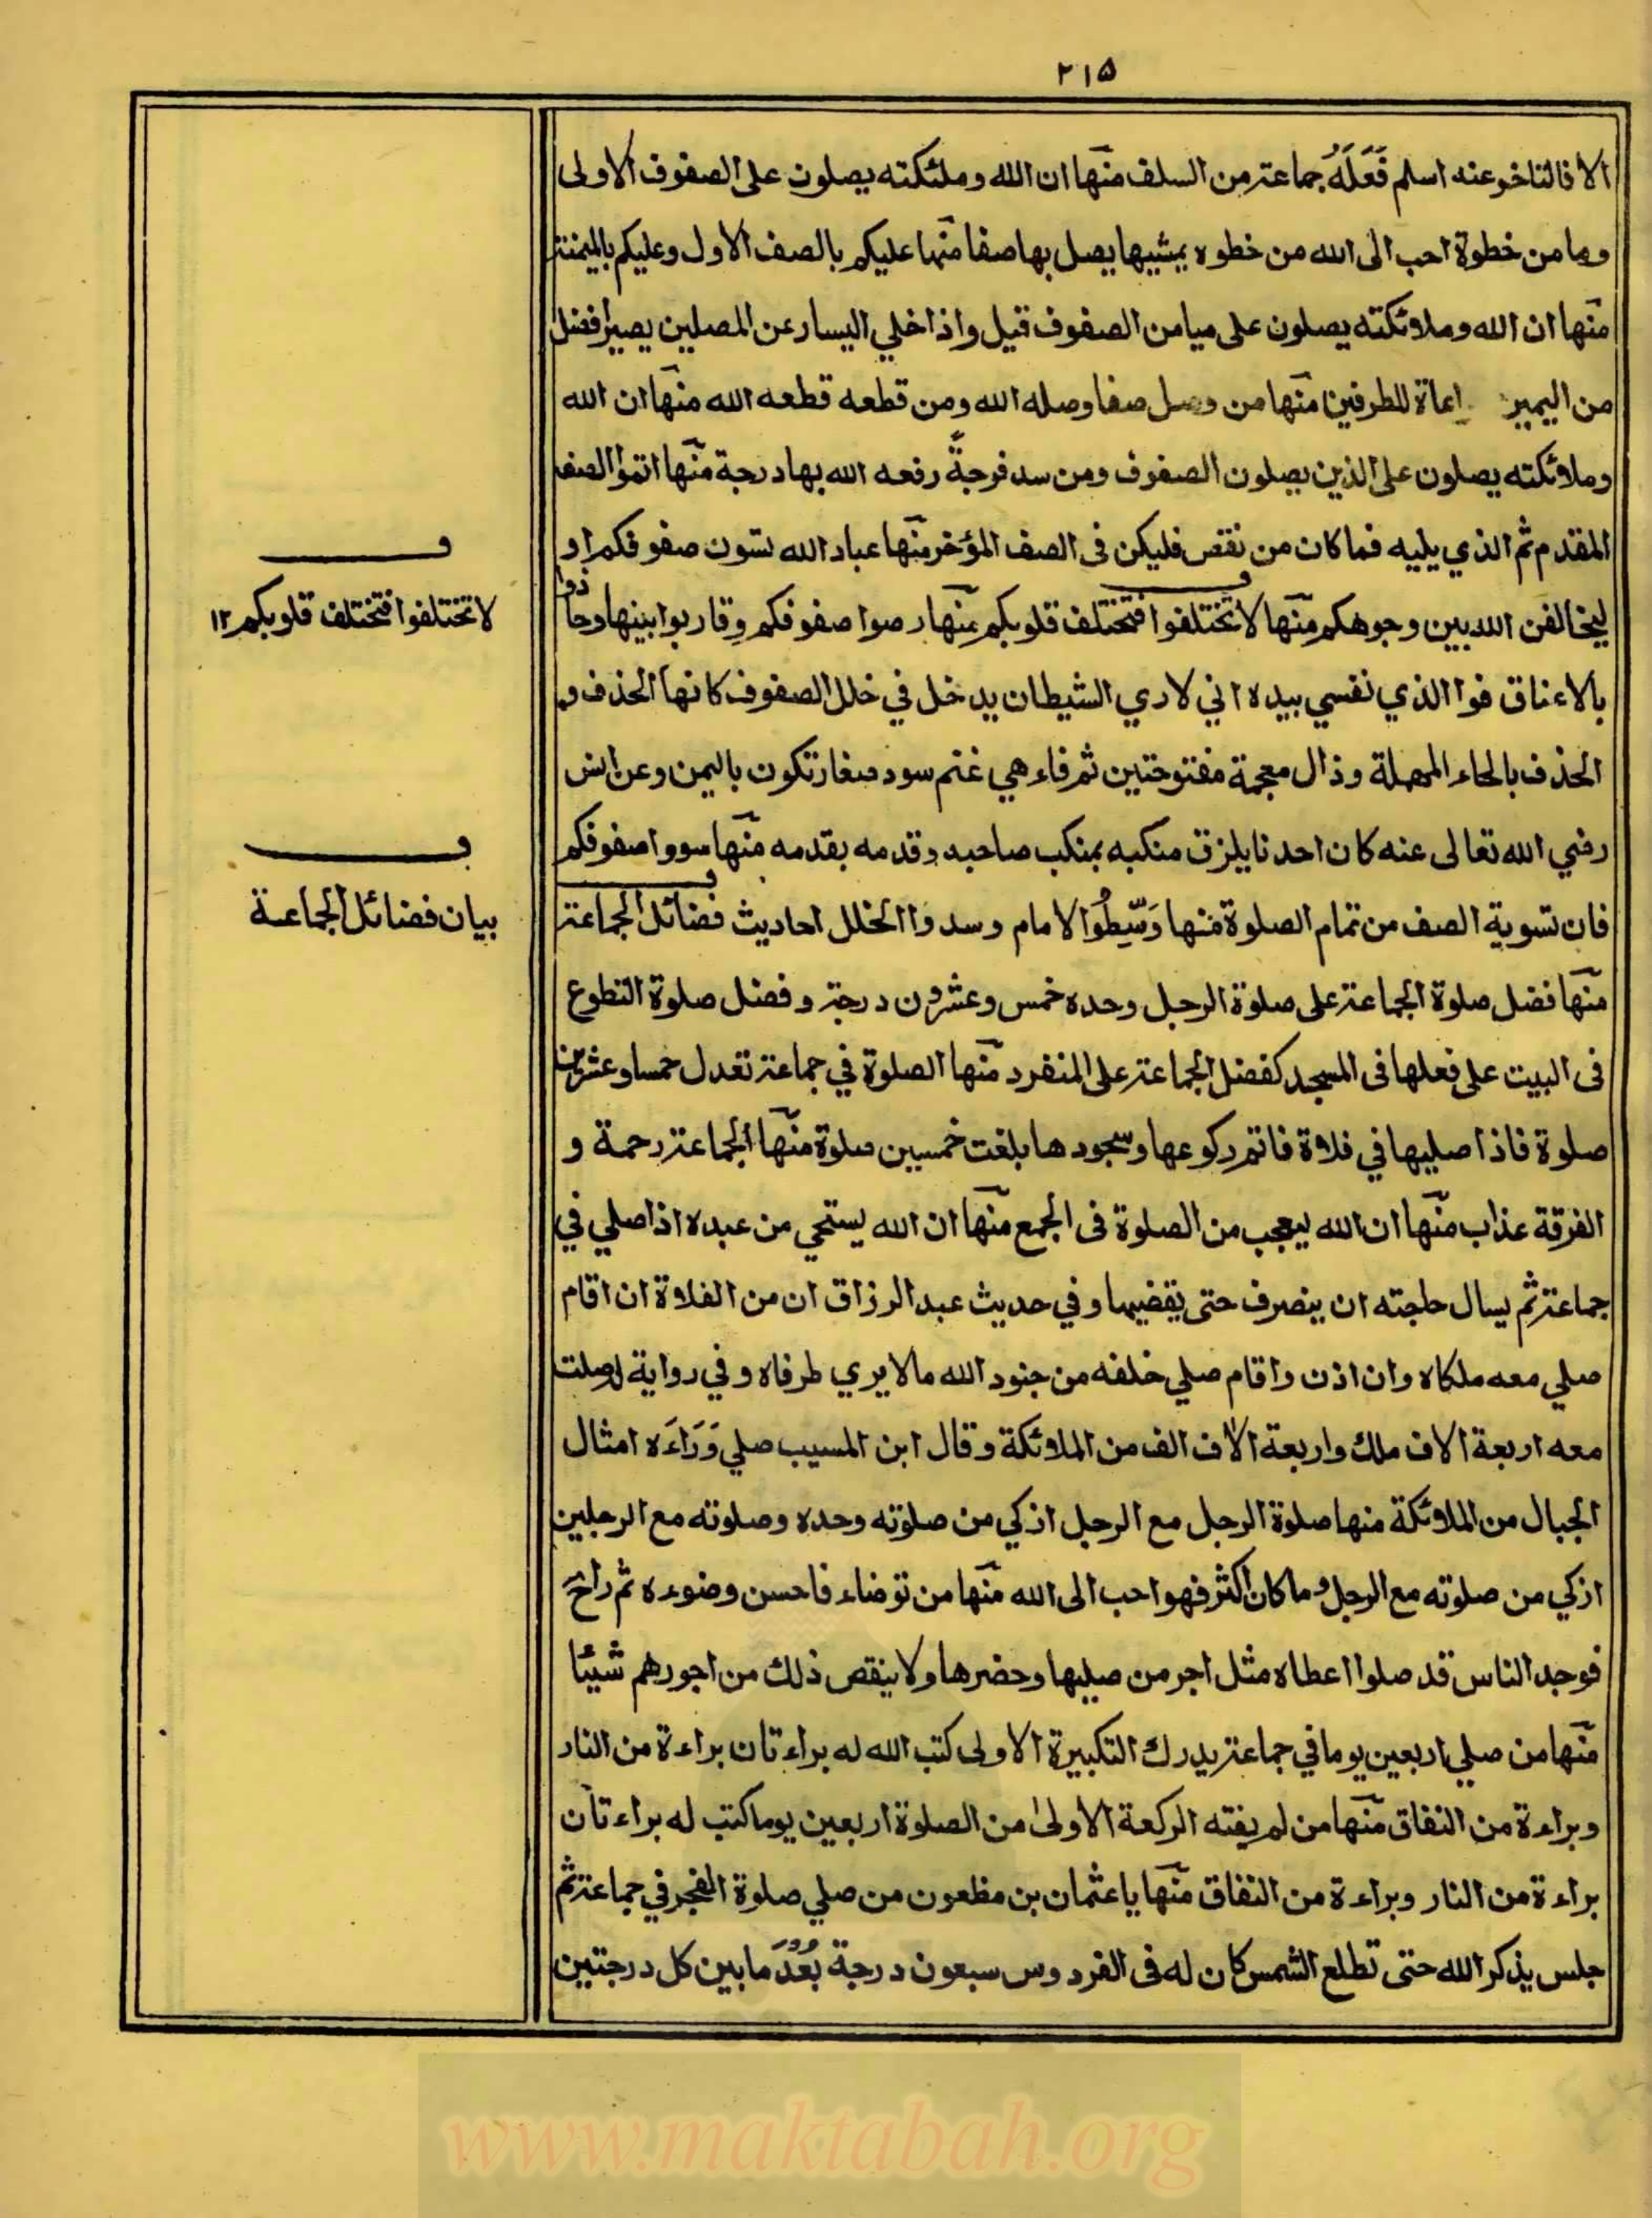 ٢١٥
الا فالتاخر عنه اسلم فَعَلَهُ جماعة من السلف منها ان الله وملئكته يصلون على الصفوف الاولى
وما من خطوة احب الى الله من خطوه يمشيها يصل بها صفا منها عليكم بالصف الاول وعليكم بالميمنة
منها ان الله وملائكته يصلون على ميامن الصفوف قيل واذا خلي اليسار عن المصلين يصير افضل
من اليمين للطرفين منها من وصل صفا وصله الله ومن قطعه قطعه الله منها ان الله
وملائكته يصلون على الذين يصلون الصفوف ومن سد فرجةً رفعه الله بها درجة منها اتموا الصف
المقدم ثم الذي يليه فما كان من نقص فليكن فى الصف المؤخر منها عباد الله لتسون صفوفكم او
ليخالفن الله بين وجوهكم منها لا تختلفوا فتختلف قلوبكم منها رصوا صفوفكم وقاربوا بينها وحاذوا
بالاعناق فوا الذي نفسي بيده اني لاري الشيطان يدخل في خلل الصفوف كانها الحذف و
الحذف بالحاء المهملة وذال معجمة مفتوحتين ثم فاء هي غنم سود صغار تكون باليمن وعن انس
رضي الله تعالى عنه كان احدنا يلزق منكبه بمنكب صاحبه وقدمه بقدمه منها سووا صفوفكم
فان تسوية الصف من تمام الصلوة منها وَسِّطُوا الامام وسدوا الخلل احاديث فضائل الجماعة
منها فضل صلوة الجماعة على صلوة الرجل وحده خمس وعشرون درجة وفضل صلوة التطوع
فى البيت على فعلها فى المسجد كفضل الجماعة على المنفرد منها الصلوة في جماعة تعدل خمسا وعشرين
صلوة فاذا صليها في فلاة فاتم ركوعها وسجودها بلغت خمسين صلوة منها الجماعة رحمة و
الفرقة عذاب منها ان الله ليعجب من الصلوة فى الجمع منها ان الله يستحي من عبده اذا صلي في
جماعة ثم يسال حاجته ان ينصرف حتى يقضيها وفي حديث عبد الرزاق ان من الفلاة ان اقام
صلي معه ملكاه وان اذن واقام صلي خلفه من جنود الله مالا يري طرفاه وفي رواية لوصلت
معه اربعة الاف ملك واربعة الاف الف من الملائكة وقال ابن المسيب صلي وَرَاءَه امثال
الجبال من الملائكة منها صلوة الرجل مع الرجل ازكي من صلوته وحده وصلوته مع الرجلين
ازكي من صلوته مع الرجل وما كان اكثر فهو احب الى الله منها من توضاء فاحسن وضوءه ثم راح
فوجد الناس قد صلوا اعطاه مثل اجر من صليها وحضرها ولا ينقص ذلك من اجورهم شيئا
منها من صلي اربعين يوما في جماعة يدرك التكبيرة الاولى كتب الله له براءتان براءة من النار
وبراءة من النفاق منها من لم يفته الركعة الاولى من الصلوة اربعين يوما كتب له براءتان
براءة من النار وبراءة من النفاق منها يا عثمان بن مظعون من صلي صلوة الفجر في جماعة ثم
جلس يذكر الله حتى تطلع الشمس كان له فى الفردوس سبعون درجة بُعْدُ ما بين كل درجتين
لا تختلفوا فتختلف قلوبكم ١٢
بيان فضائل الجماعة
www.maktabah.org